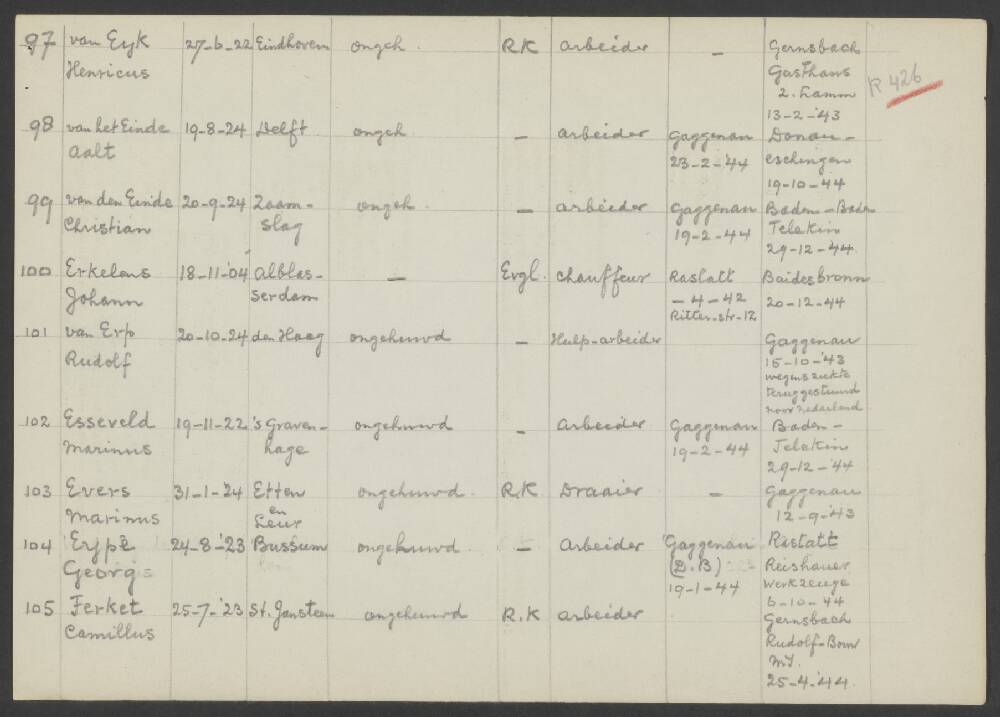 97 van Eyk 27-6-22 Eindhoven ongeh. RK arbeider – Gernsbach
Henricus Gasthaus
2. Lamm
13-2-'43
R 426
98 van het Einde 19-8-24 Delft ongeh – arbeider Gaggenau Donau-
Aalt 23-2-'44 eschingen
19-10-44
99 van den Einde 20-9-24 Zaam- ongeh – arbeider Gaggenau Baden-Baden
Christian slag 19-2-44 Telekin
29-12-'44
100 Erkelens 18-11-'04 Alblas- – Evgl. chauffeur Rastatt Baidesbronn
Johann serdam – 4-42 20-12-44
Ritter-str-12
101 van Erp 20-10-24 den Haag ongehuwd – Hulp-arbeider Gaggenau
Rudolf 15-10-'43
wegens ziekte
teruggestuurd
voor nederland
102 Esseveld 19-11-22 's Graven- ongehuwd – arbeider Gaggenau Baden-
Marinus hage 19-2-44 Telekin
29-12-'44
103 Evers 31-1-'24 Etten ongehuwd. R.K Draaier – Gaggenau
Marinus en 12-9-'43
Leur
104 Erppê 24-8-'23 Bussum ongehuwd – Arbeider Gaggenau Rastatt
Georg (D.B) Reishauer
19-1-44 Werkzeuge
6-10-44
105 Ferket 25-7-'23 St. Jansteen ongehuwd R.K arbeider Gernsbach
Camillus Rudolf-Bour
25-4-'44.